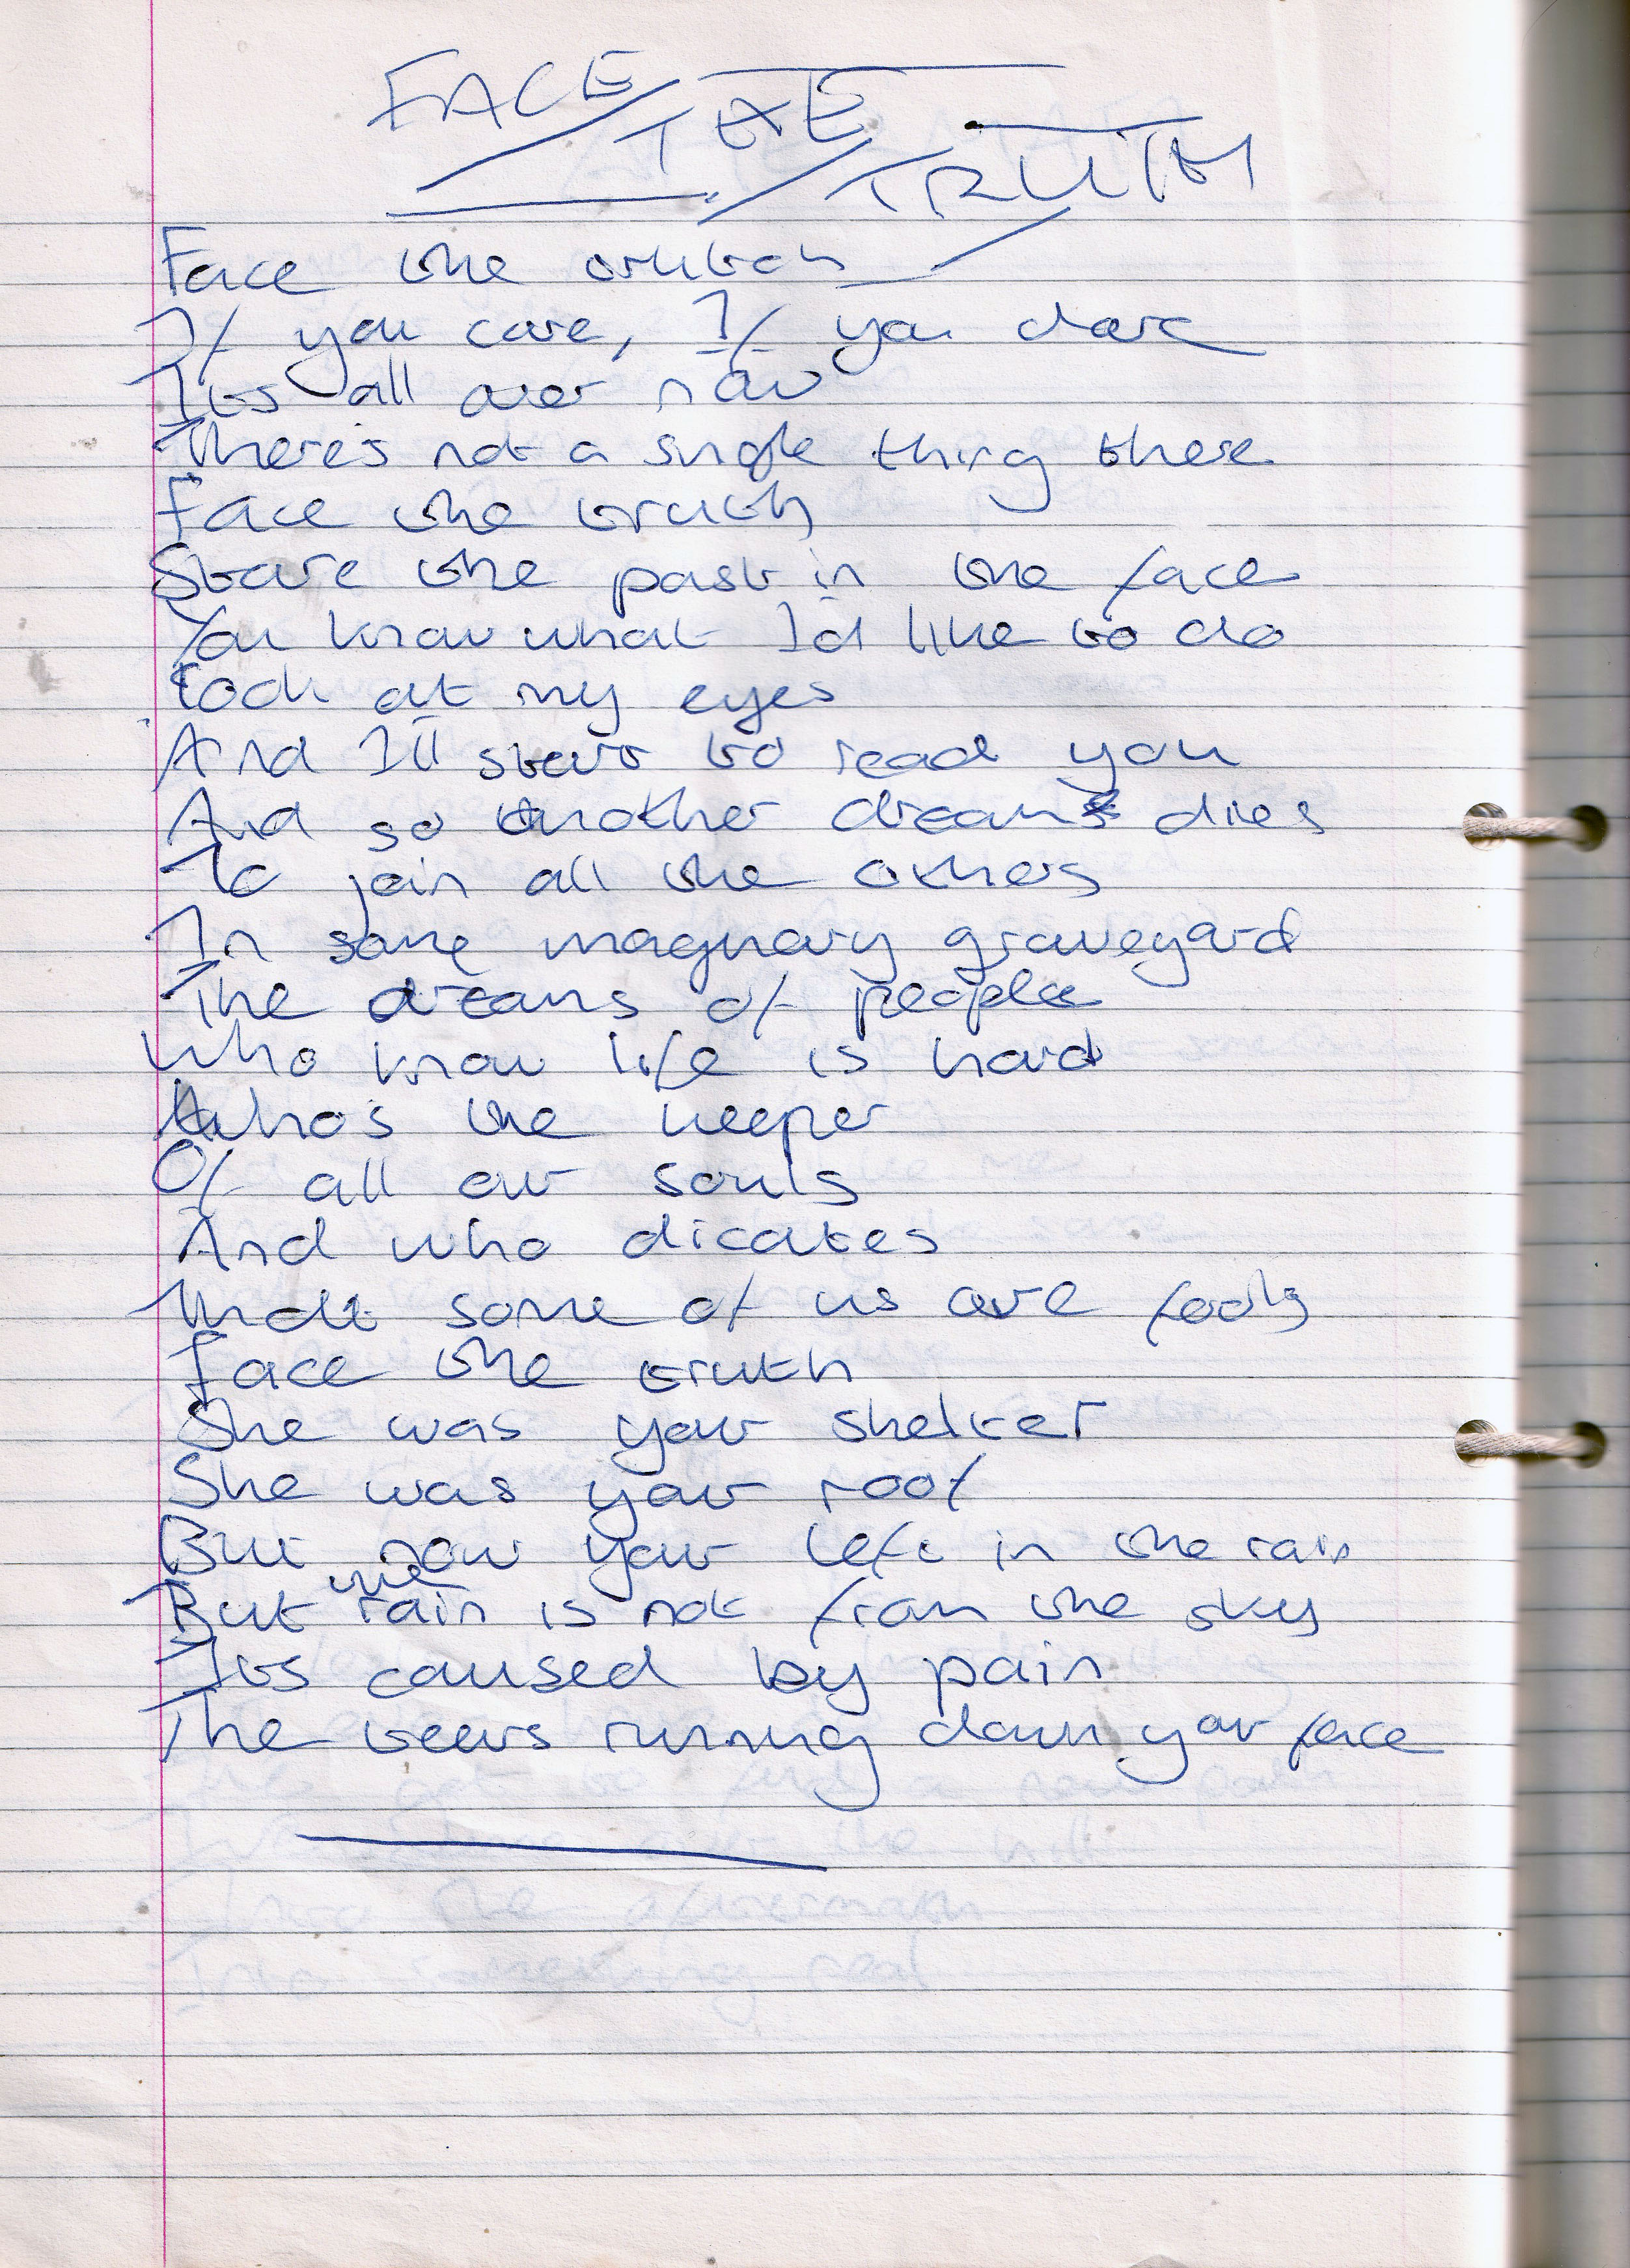 FACE THE TRUTH
Face the truth
If you care, If you dare
Its all over now
There's not a single thing there
Face the truth
Stare the past in the face
You know what I'd like to do
Look at my eyes
And I'll start to read you
And so another dream dies
To join all the others
In some imaginary graveyard
The dreams of people
Who know life is hard
Who's the keeper
Of all our souls
And who dicates
That some of us are fools
Face the truth
She was your shelter
She was your roof
But now your left in the rain
But the rain is not from the sky
Its caused by pain
The tears running down your face